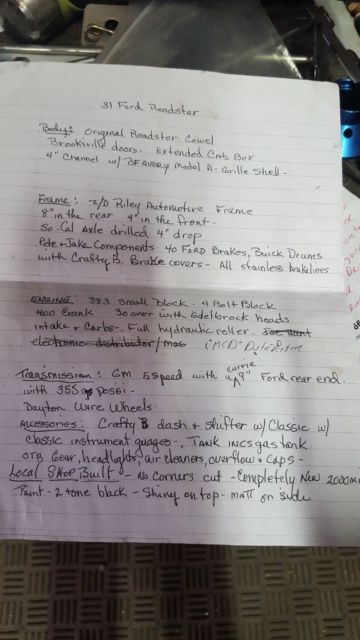 31 Ford Roadster
Body: Original Roadster Cowel
Brooksville doors. Extended Cab Box
4" Channel w/ BF AVERY Model A- Grille Shell-
Frame: Z/D Riley Automotive Frame
8" in the rear 4" in the front.
So Cal Axle drilled 4" drop
Pete + Jake Components. 40 FORD Brakes, Buick Drums
with Crafty B. Brake covers- All stainless brakelines
ENGINE: 383 small block. 4 Bolt Block
400 Crank 30 over with Edelbrock heads
intake + Carbs-. Full hydraulic roller. Joe Hunt
electronic distributor/mag
Transmission: GM 5 speed with currie 9" Ford rear end.
with 355 posi.
Dayton Wire Wheels.
Accessories: Crafty B dash + shifter w/ Classic w/
classic instrument guages-. Tank incs gas tank.
OTB Gear, headlights, air cleaners, overflow + Caps-
Local Shop Built - No Corners cut - Completely New 2000m
Paint - 2 tone black - Shiny on top - matt on side